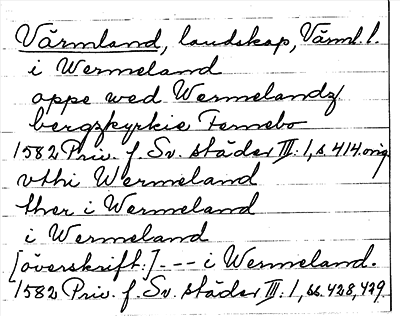 Värmland, landskap, Värml. l.
i Wermeland
oppe wed Wermelandz
bergzkyrkie Fernebo
1582 Priv. f. Sv. städer III: 1, s. 414. orig.
vthi Wermeland
ther i Wermeland
i Wermeland
[överskrift.] --- i Wermeland.
1582 Priv. f. Sv. städer III: 1, ss. 428, 429.